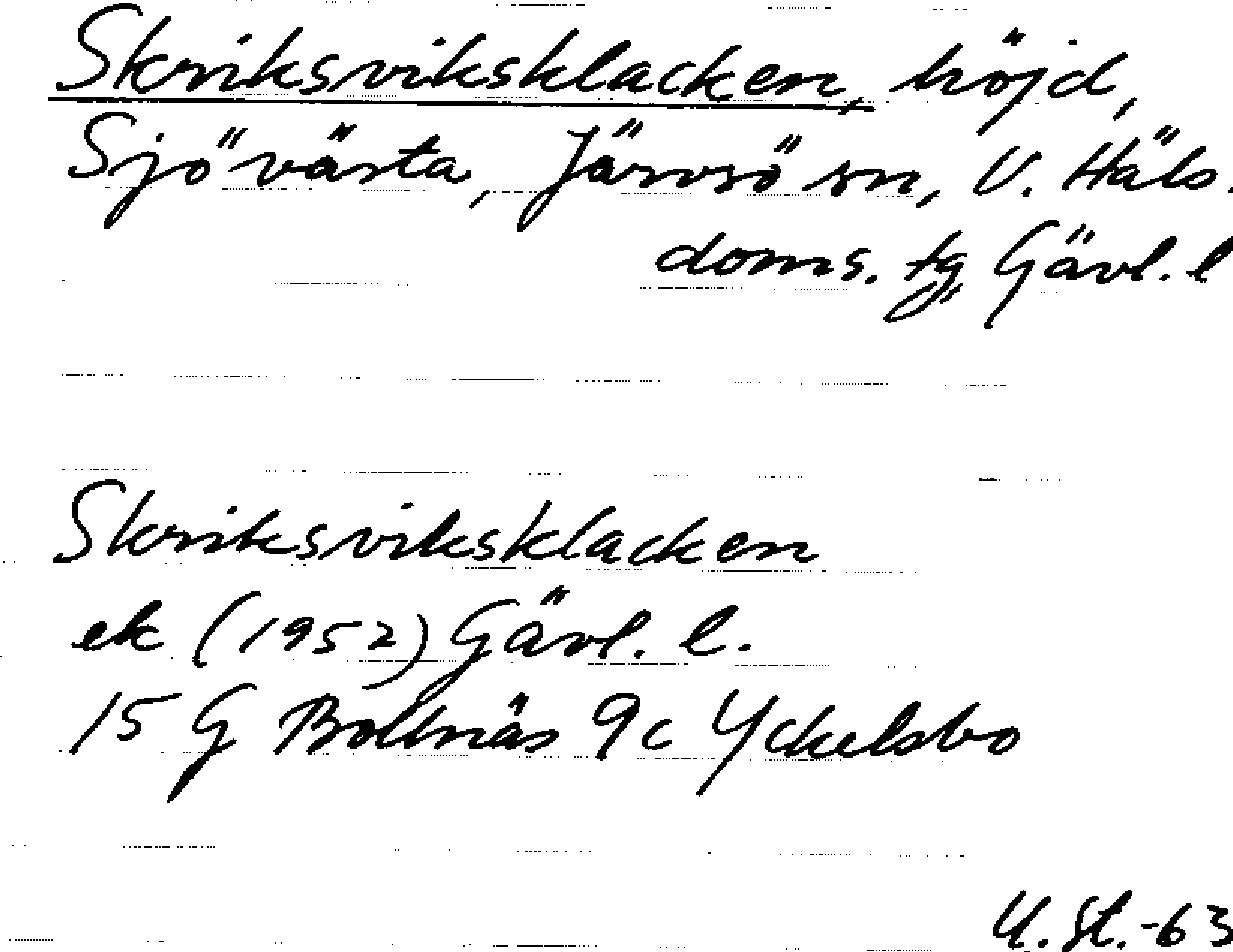 Skriksviksklacken, höjd,
Sjövästa, Järvsö sn, V. Häls.
doms. tg, Gävl. l
Skriksviksklacken
ek (1952) Gävl. l.
15 G Bollnäs 9c Yckelsbo
U. St. -63